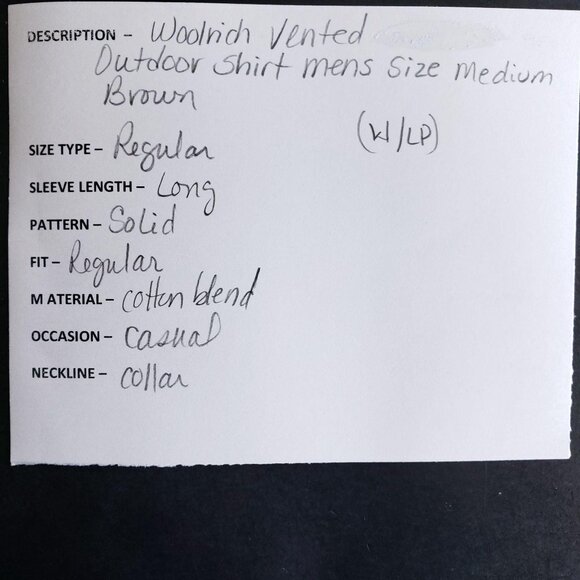 DESCRIPTION – Woolrich Vented
Outdoor Shirt mens Size Medium
Brown
(W/LP)
SIZE TYPE – Regular
SLEEVE LENGTH – Long
PATTERN – Solid
FIT – Regular
M ATERIAL – cotton blend
OCCASION – casual
NECKLINE – collar